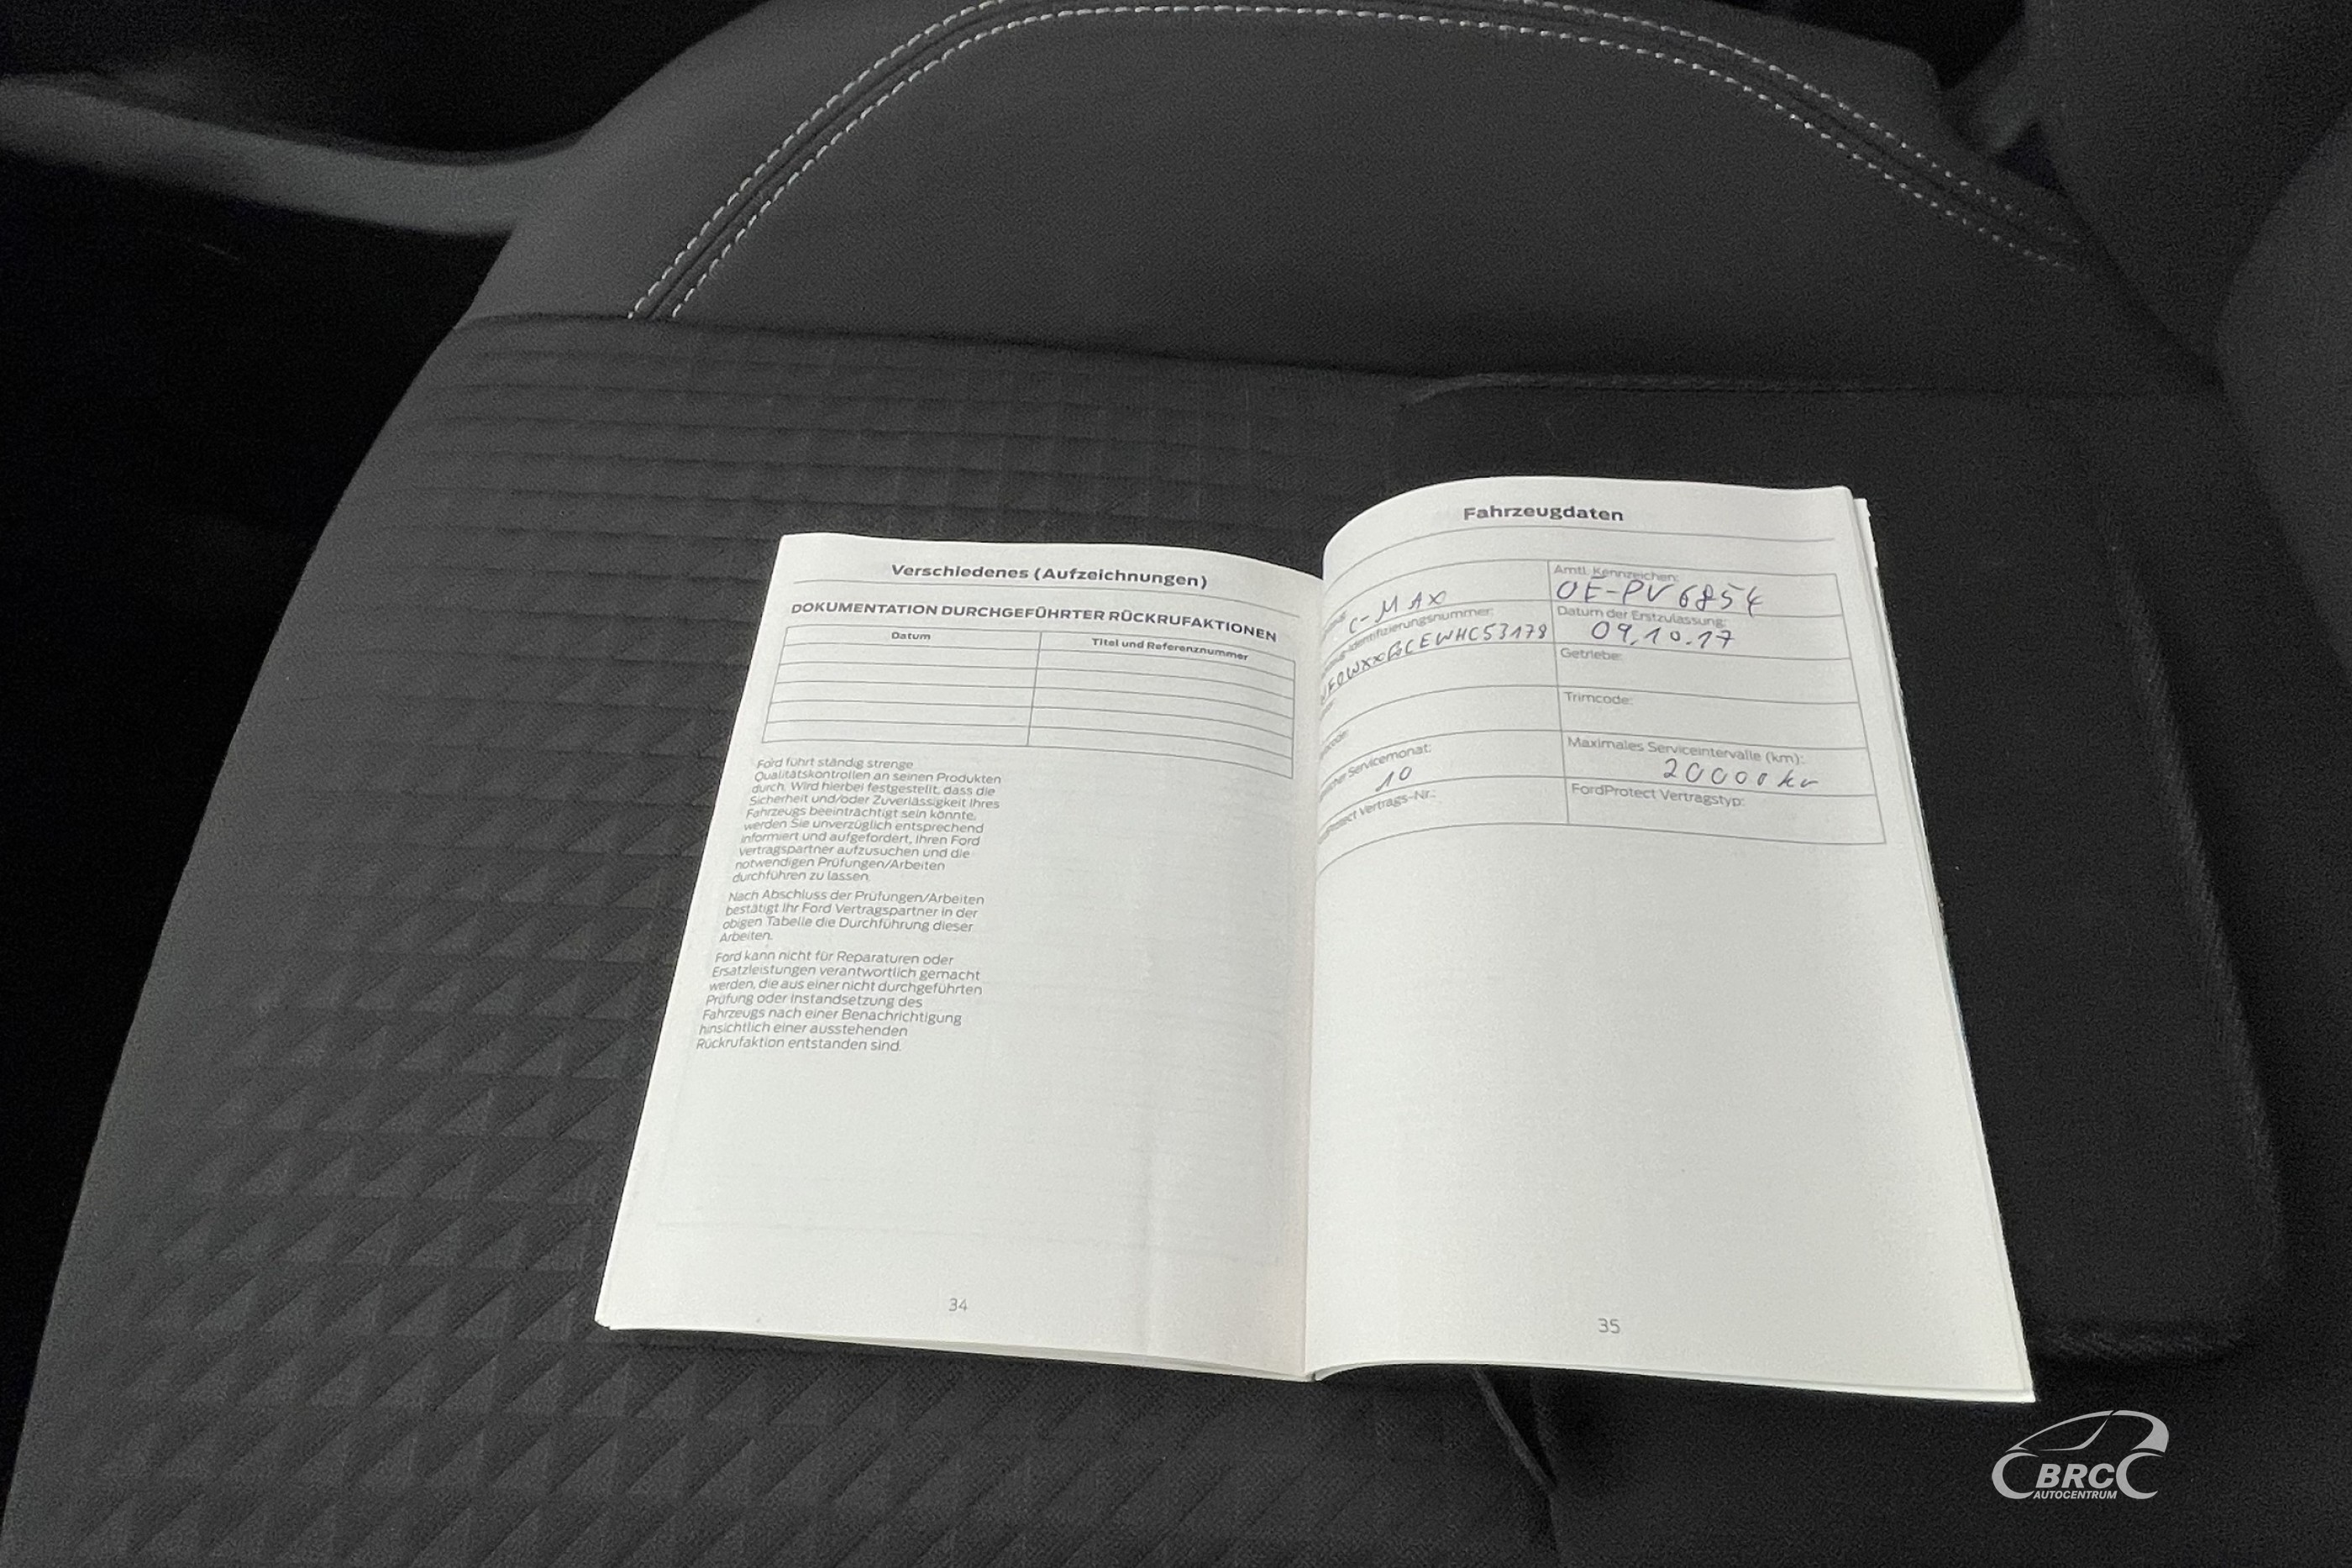 Verschiedenes (Aufzeichnungen)
DOKUMENTATION DURCHGEFÜHRTER RÜCKRUFAKTIONEN
Datum
Titel und Referenznummer
Ford führt ständig strenge
Qualitätskontrollen an seinen Produkten
durch. Wird hierbei festgestellt, dass die
Sicherheit und/oder Zuverlässigkeit Ihres
Fahrzeugs beeinträchtigt sein könnte,
werden Sie unverzüglich entsprechend
informiert und aufgefordert, Ihren Ford
Vertragspartner aufzusuchen und die
notwendigen Prüfungen/Arbeiten
durchführen zu lassen.
Nach Abschluss der Prüfungen/Arbeiten
bestätigt Ihr Ford Vertragspartner in der
obigen Tabelle die Durchführung dieser
Arbeiten.
Ford kann nicht für Reparaturen oder
Ersatzleistungen verantwortlich gemacht
werden, die aus einer nicht durchgeführten
Prüfung oder Instandsetzung des
Fahrzeugs nach einer Benachrichtigung
hinsichtlich einer ausstehenden
Rückrufaktion entstanden sind.
34
Fahrzeugdaten
C-MAX
Amtl. Kennzeichen:
OE-PV 6854
Datum der Erstzulassung:
09.10.17
Getriebe:
Trimcode:
Servicemonat:
10
Maximales Serviceintervalle (km):
20000 km
Vertrags-Nr.:
FordProtect Vertragstyp:
35
BRC
AUTOCENTRUM